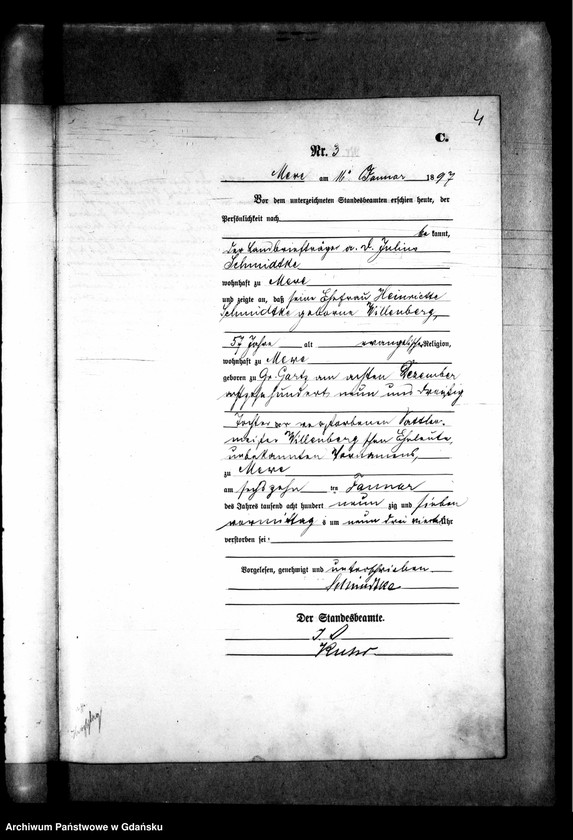 4
C.
Nr. 3
Mewe am 16 Januar 1897
Vor dem unterzeichneten Standesbeamten erschien heute, der
Persönlichkeit nach
be kannt,
der Landbriefträger a. D. Julius
Schmidtke
wohnhaft zu Mewe
und zeigte an, daß seine Ehefrau Heinriette
Schmidtke geborne Willenberg,
57 Jahre alt evangelischer Religion,
wohnhaft zu Mewe
geboren zu Gr. Gartz am ersten Dezember
achtzehnhundert neun und dreißig
Tochter der verstorbenen Sattler-
meister Willenberg'schen Eheleute,
unbekannten Vornamens,
zu Mewe
am sechszehn ten Januar
des Jahres tausend acht hundert neun zig und sieben
vormittags um neun drei viertel Uhr
verstorben sei.
Vorgelesen, genehmigt und unterschrieben
Schmidtke
Der Standesbeamte.
Archiwum Państwowe w Gdańsku